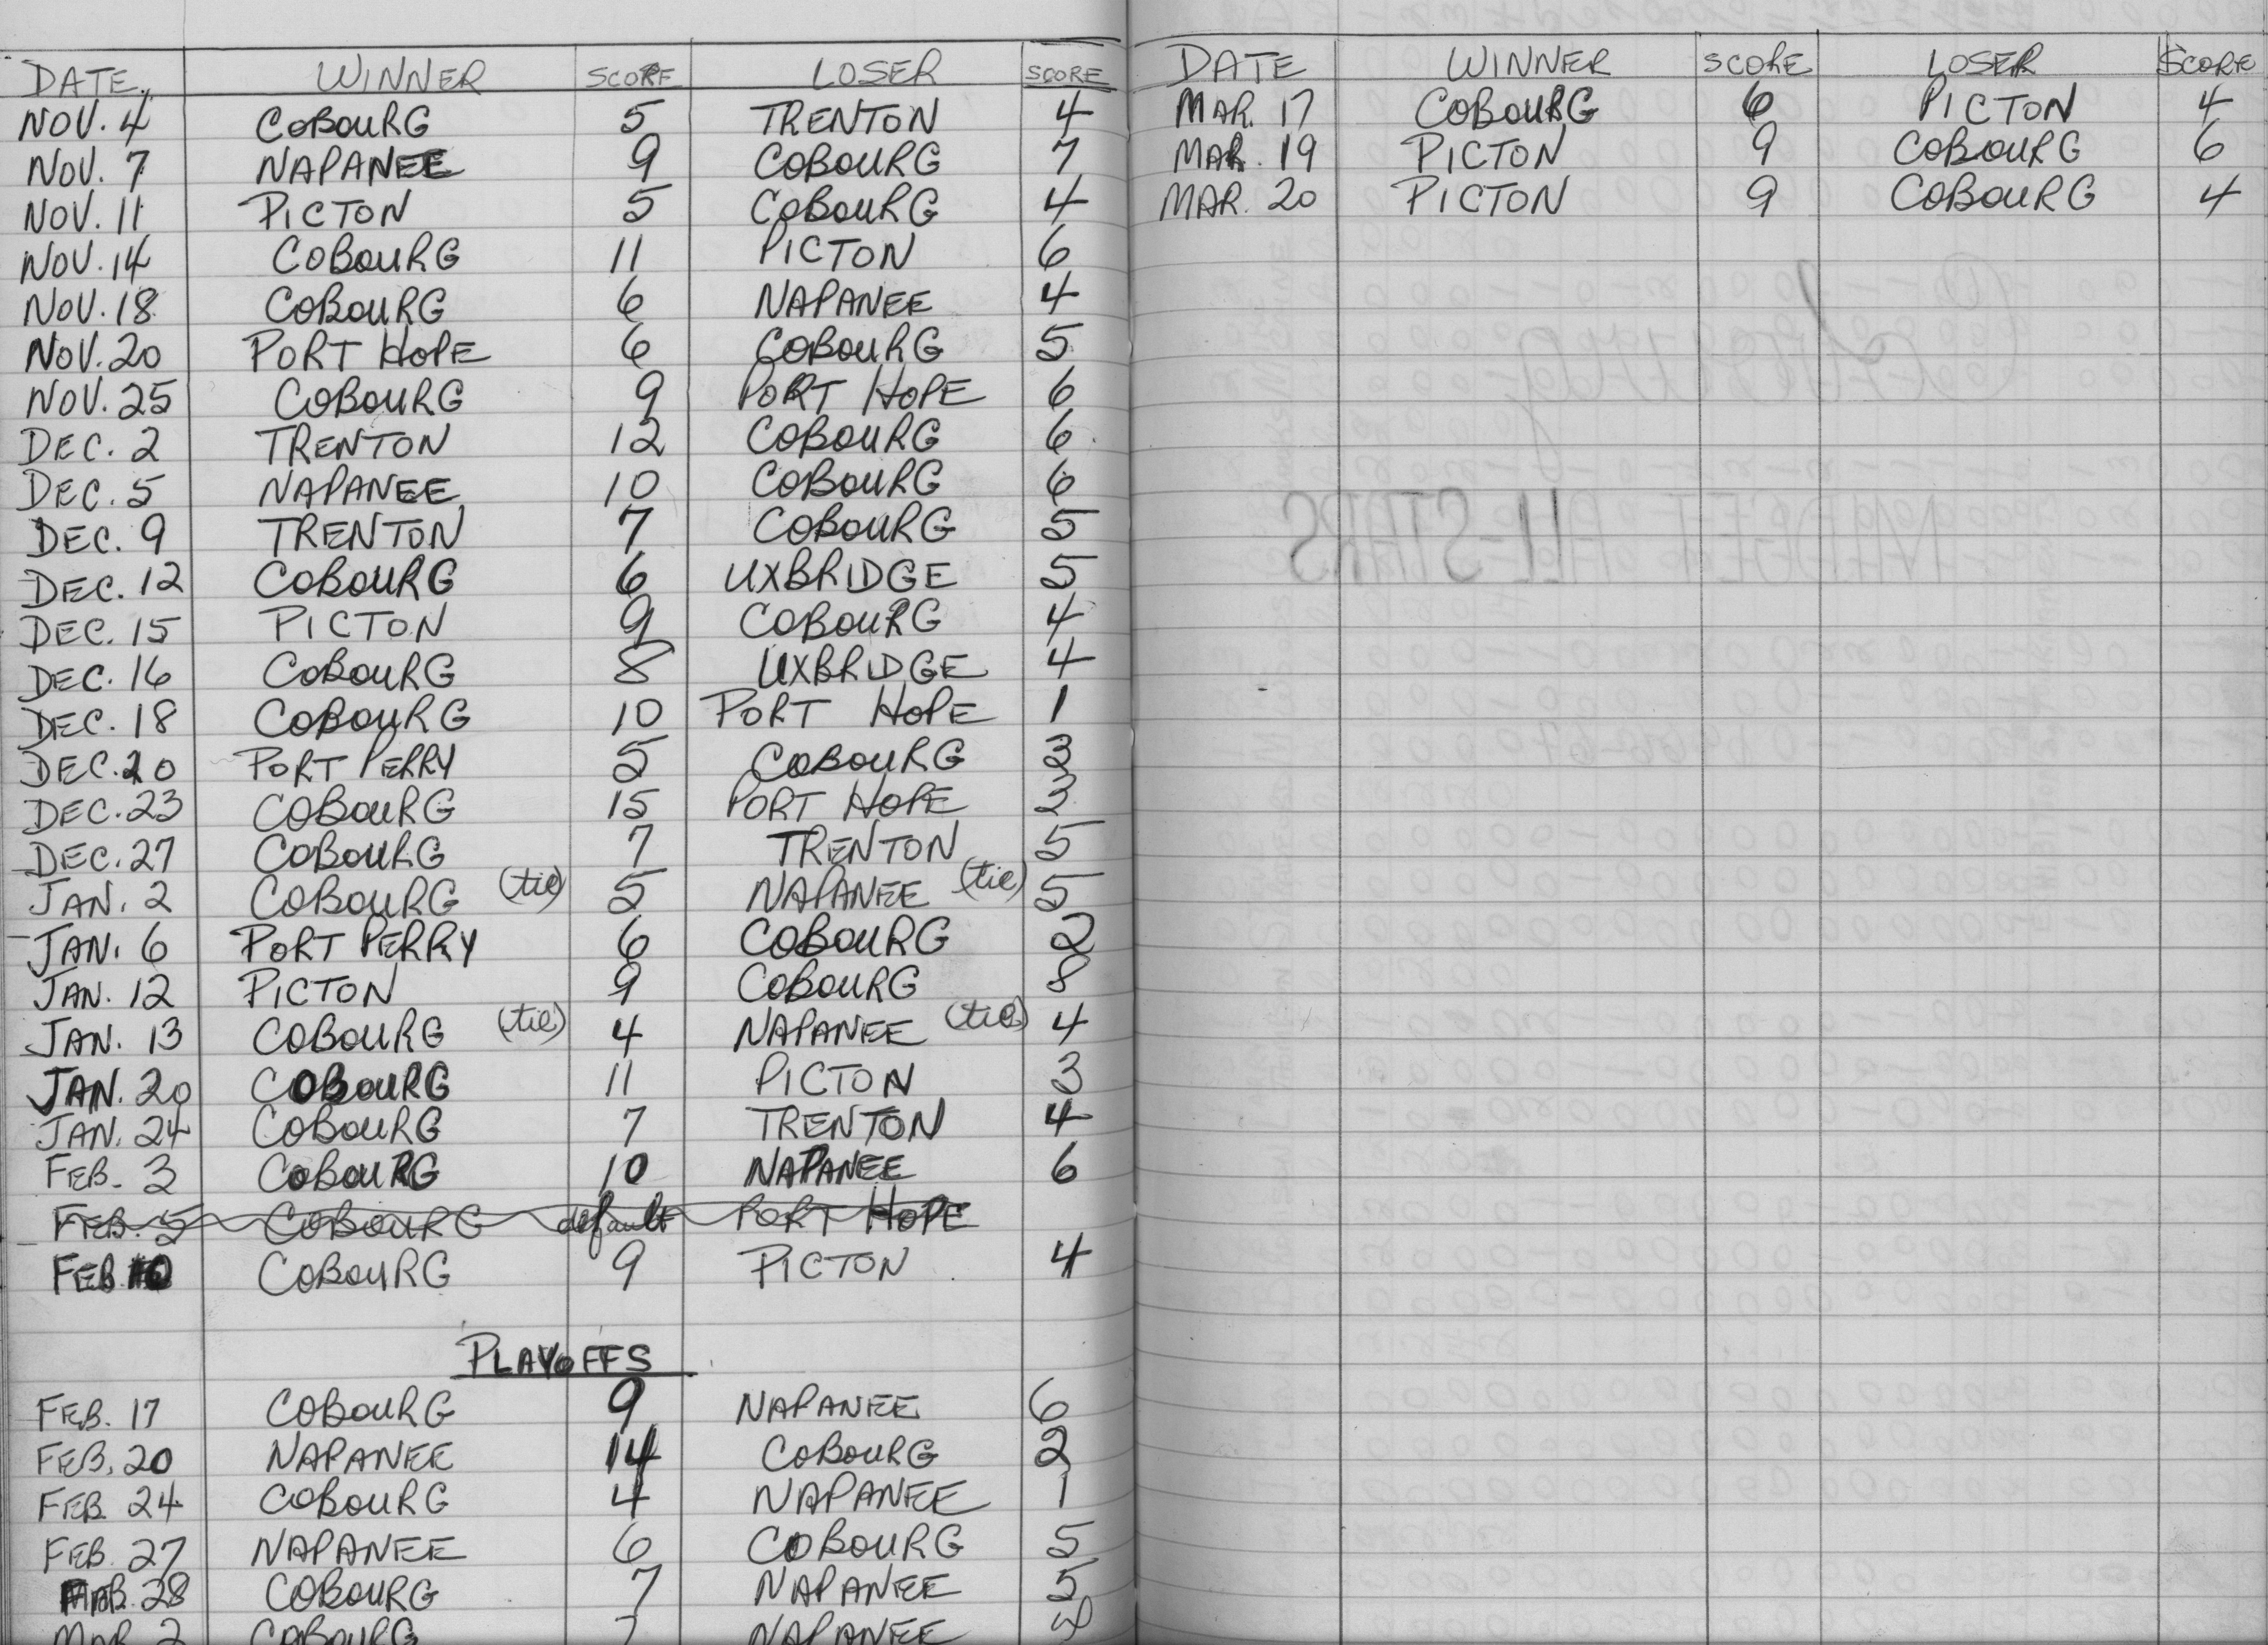 DATE WINNER SCORE LOSER SCORE
NOV. 4 COBOURG 5 TRENTON 4
NOV. 7 NAPANEE 9 COBOURG 7
NOV. 11 PICTON 5 COBOURG 4
NOV. 14 COBOURG 11 PICTON 6
NOV. 18 COBOURG 6 NAPANEE 4
NOV. 20 PORT HOPE 6 COBOURG 5
NOV. 25 COBOURG 9 PORT HOPE 6
DEC. 2 TRENTON 12 COBOURG 6
DEC. 5 NAPANEE 10 COBOURG 6
DEC. 9 TRENTON 7 COBOURG 5
DEC. 12 COBOURG 6 UXBRIDGE 5
DEC. 15 PICTON 9 COBOURG 4
DEC. 16 COBOURG 8 UXBRIDGE 4
DEC. 18 COBOURG 10 PORT HOPE 1
DEC. 20 PORT PERRY 5 COBOURG 3
DEC. 23 COBOURG 15 PORT HOPE 3
DEC. 27 COBOURG 7 TRENTON 5
JAN. 2 COBOURG (tie) 5 NAPANEE (tie) 5
JAN. 6 PORT PERRY 6 COBOURG 2
JAN. 12 PICTON 9 COBOURG 8
JAN. 13 COBOURG (tie) 4 NAPANEE (tie) 4
JAN. 20 COBOURG 11 PICTON 3
JAN. 24 COBOURG 7 TRENTON 4
FEB. 3 COBOURG 10 NAPANEE 6
FEB. 5 COBOURG default PORT HOPE
FEB. COBOURG 9 PICTON 4
PLAYOFFS
FEB. 17 COBOURG 9 NAPANEE 6
FEB. 20 NAPANEE 14 COBOURG 2
FEB. 24 COBOURG 4 NAPANEE 1
FEB. 27 NAPANEE 6 COBOURG 5
28 COBOURG 7 NAPANEE 5
MAR. 2 COBOURG 7 NAPANEE
DATE WINNER SCORE LOSER SCORE
MAR. 17 COBOURG 6 PICTON 4
MAR. 19 PICTON 9 COBOURG 6
MAR. 20 PICTON 9 COBOURG 4